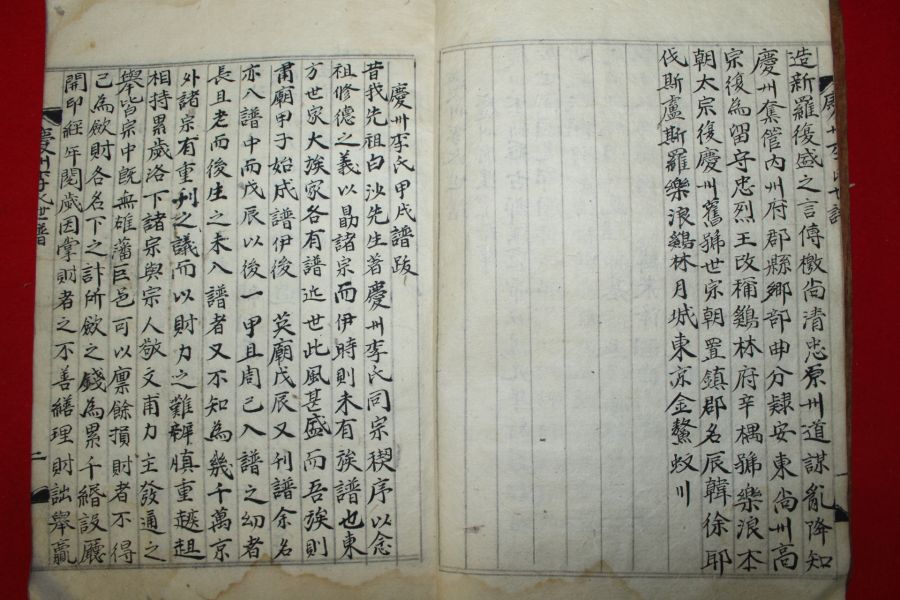 造新羅復盛之言傳檄尙淸忠原州道謀亂降知
慶州奪管內州府郡縣鄕部曲分隸安東尙州高
宗復爲留守忠烈王改稱鷄林府辛禑號樂浪本
朝太宗復慶州舊號世宗朝置鎭郡名辰韓徐耶
伐斯盧斯羅樂浪鷄林月城東京金鰲蚊川
慶州李氏甲戌譜跋
昔我先祖白沙先生著慶州李氏同宗稧序以念
祖修德之義以勗諸宗而伊時則未有族譜也東
方世家大族家各有譜迄世此風甚盛而吾族則
肅廟甲子始成譜伊後 英廟戊辰又刊譜余名
亦入譜中而戊辰以後一甲且周已入譜之幼者
長且老而後生之未入譜者又不知爲幾千萬京
外諸宗有重刋之議而以財力之難辦愼重越趄
相持累歲洛下諸宗與宗人敬文甫力主發通之
擧皆宗中旣無雄藩巨邑可以廩餘損財者不得
已爲歛財各名下之計所歛之錢爲累千緡設廳
開印經年閱歲因掌財者之不善繕理財詘擧贏
慶州李氏世譜
二